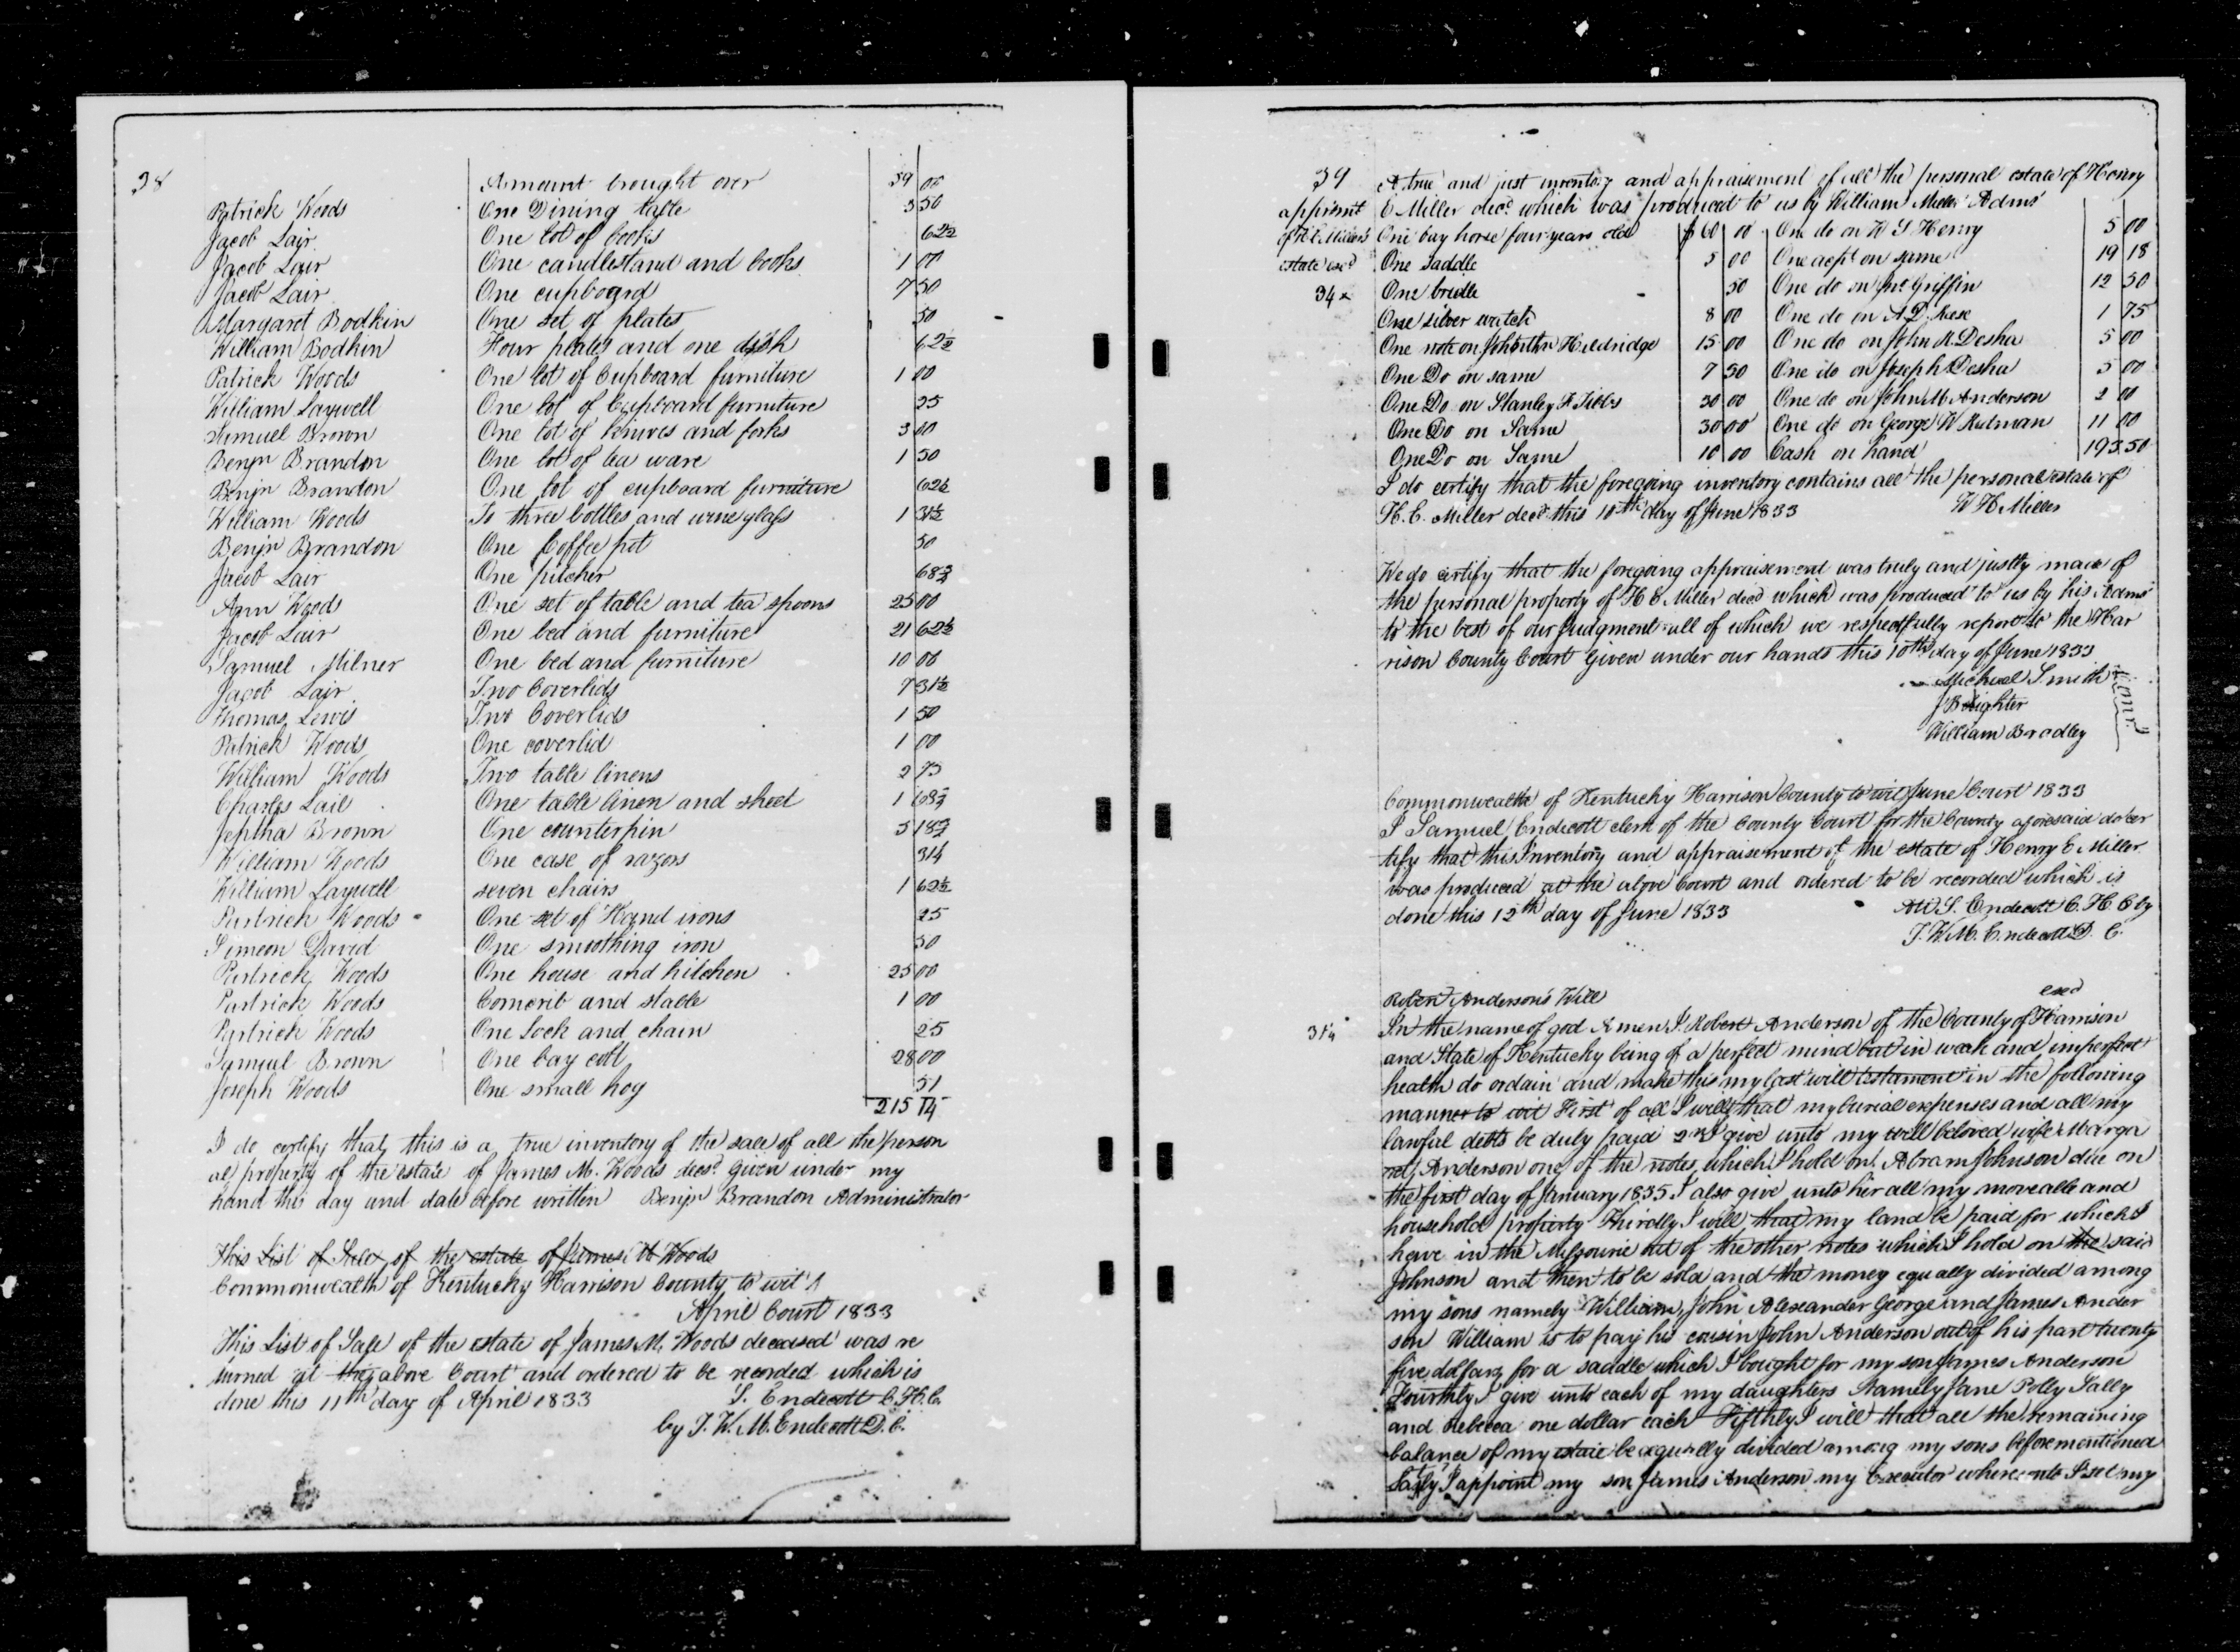 38
Amount brought over 59 00
Patrick Woods One Dining table 3 50
Jacob Lair One lot of books 62½
Jacob Lair One candlestand and books 1 00
Jacob Lair One cupboard 7 50
Margaret Bodkin One set of plates 50
William Bodkin Four plates and one dish 62½
Patrick Woods One lot of Cupboard furniture 1 00
William Laywell One lot of Cupboard furniture 25
Samuel Brown One lot of knives and forks 3 00
Benjn Brandon One lot of tea ware 1 50
Benjn Brandon One lot of cupboard furniture 62½
William Woods To three bottles and wine glass 1 31½
Benjn Brandon One Coffee pot 50
Jacob Lair One pitcher 68¾
Ann Woods One set of table and tea spoons 25 00
Jacob Lair One bed and furniture 21 62½
Samuel Milner One bed and furniture 10 00
Jacob Lair Two Coverlids 7 31½
Thomas Lewis Two Coverlids 1 50
Patrick Woods One coverlid 1 00
William Woods Two table linens 2 75
Charles Lail One table linen and sheet 1 68¾
Jeptha Brown One counterpin 5 18¾
William Woods One case of razors 31¼
William Laywell seven chairs 1 62½
Partrick Woods One set of Hand irons 25
Simeon David One smoothing iron 50
Partrick Woods One house and kitchen 25 00
Partrick Woods Corncrib and stable 1 00
Partrick Woods One Lock and chain 25
Samuel Brown One bay colt 28 00
Joseph Woods One small hog 51
215 14
I do certify that this is a true inventory of the sale of all the person
al property of the estate of James M. Woods decsd. Given under my
hand this day and date before written Benjn Brandon Administrator
This List of Sale of the estate of James M Woods
Commonwealth of Kentucky Harrison County to wit
April Court 1833
This List of Sale of the estate of James M. Woods deceased was re
turned at the above Court and ordered to be recorded which is
done this 11th day of April 1833 S. Endecott C.H.C.
by J. W. M. Endecott D.C.
39 A true and just inventory and appraisement of all the personal estate of Henry
apprismt C Miller decd. which was produced to us by William Miller Admr
of H.C. Miller's One bay horse four years old $60 00 One do on W S Henry 5 00
estate exd One saddle 5 00 One acpt on same 19 18
34 One bridle 50 One do on Jno Griffin 12 50
One silver watch 8 00 One do on A D Kese 1 75
One note on Johnathn Heldridge 15 00 One do on John K. Desha 5 00
One Do on same 7 50 One do on Joseph Desha 5 00
One Do on Stanley F Tibbs 30 00 One do on John M Anderson 2 00
One Do on Same 30 00 One do on George W Rutman 11 00
One Do on Same 10 00 Cash on hand 193.50
I do certify that the foregoing inventory contains all the personal estate of
H. C. Miller decd. this 10th day of June 1833 W H Miller
We do certify that the foregoing appraisement was truly and justly made of
the personal property of H C Miller decd which was produced to us by his Admr
to the best of our Judgment all of which we respectfully report to the Har
rison County Court Given under our hands this 10th day of June 1833
Michael Smith
William Bradley
Commonwealth of Kentucky Harrison County to wit June Court 1833
I Samuel Endecott clerk of the County Court for the County aforesaid do cer
tify that this Inventory and appraisement of the estate of Henry C Miller
was produced at the above Court and ordered to be recorded which is
done this 12th day of June 1833 Att S. Endecott C. H. C by
J. W. M. Endecott D. C.
Robert Anderson's Will exd
In the name of god Amen I. Robert Anderson of the County of Harrison
and State of Kentucky being of a perfect mind but in weak and imperfect
health do ordain and make this my last will testament in the following
manner to wit First of all I will that my burial expenses and all my
lawful debts be duly paid 2nd I give unto my well beloved wife Marga
ret Anderson one of the notes which I hold on Abram Johnson due on
the first day of January 1835 I also give unto her all my moveable and
household property Thirdly I will that my land be paid for which I
have in the Missourie out of the other notes which I hold on the said
Johnson and then to be sold and the money equally divided among
my sons namely William, John Alexander George and James Ander
son William is to pay his cousin John Anderson out of his part twenty
five dollars for a saddle which I bought for my son James Anderson
Fourthly I give unto each of my daughters Namely Jane Polly Sally
and Rebecca one dollar each Fifthly I will that all the remaining
balance of my estate be equally divided among my sons before mentioned
Lastly I appoint my son James Anderson my Executor whereunto I set my